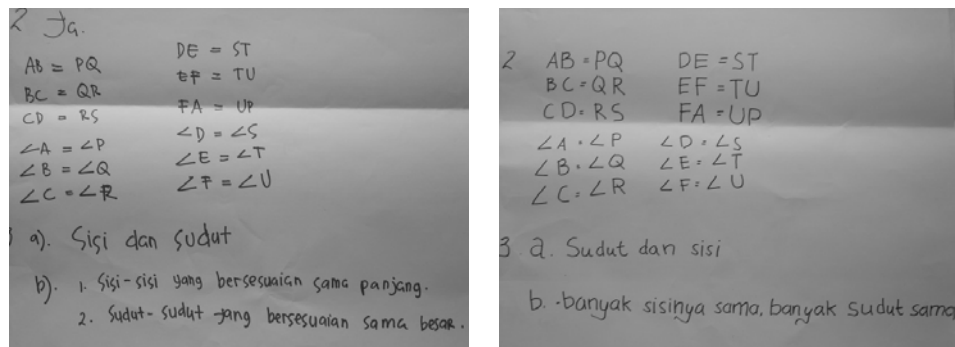 2 Ja.
AB = PQ
BC = QR
CD = RS
∠A = ∠P
∠B = ∠Q
∠C = ∠R
DE = ST
EF = TU
FA = UP
∠D = ∠S
∠E = ∠T
∠F = ∠U
a). Sisi dan sudut
b). 1. Sisi-sisi yang bersesuaian sama panjang.
2. Sudut-sudut yang bersesuaian sama besar.
2 AB = PQ
BC = QR
CD = RS
∠A = ∠P
∠B = ∠Q
∠C = ∠R
DE = ST
EF = TU
FA = UP
∠D = ∠S
∠E = ∠T
∠F = ∠U
3 a. Sudut dan sisi
b. -banyak sisinya sama, banyak sudut sama